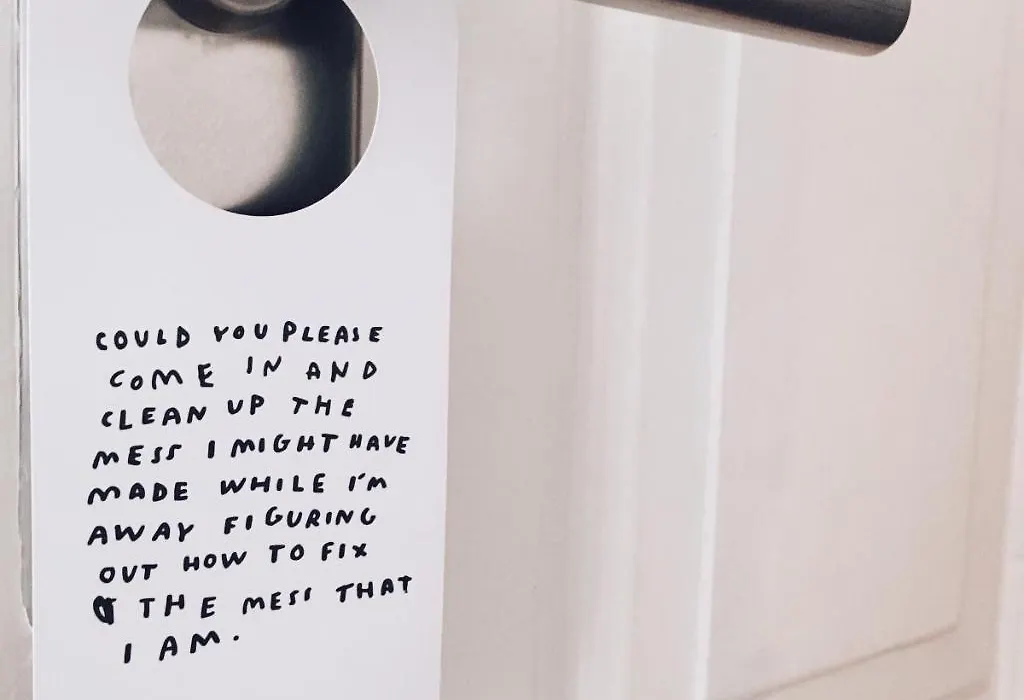 COULD YOU PLEASE
COME IN AND
CLEAN UP THE
MESS I MIGHT HAVE
MADE WHILE I'M
AWAY FIGURING
OUT HOW TO FIX
THE MESS THAT
I AM.